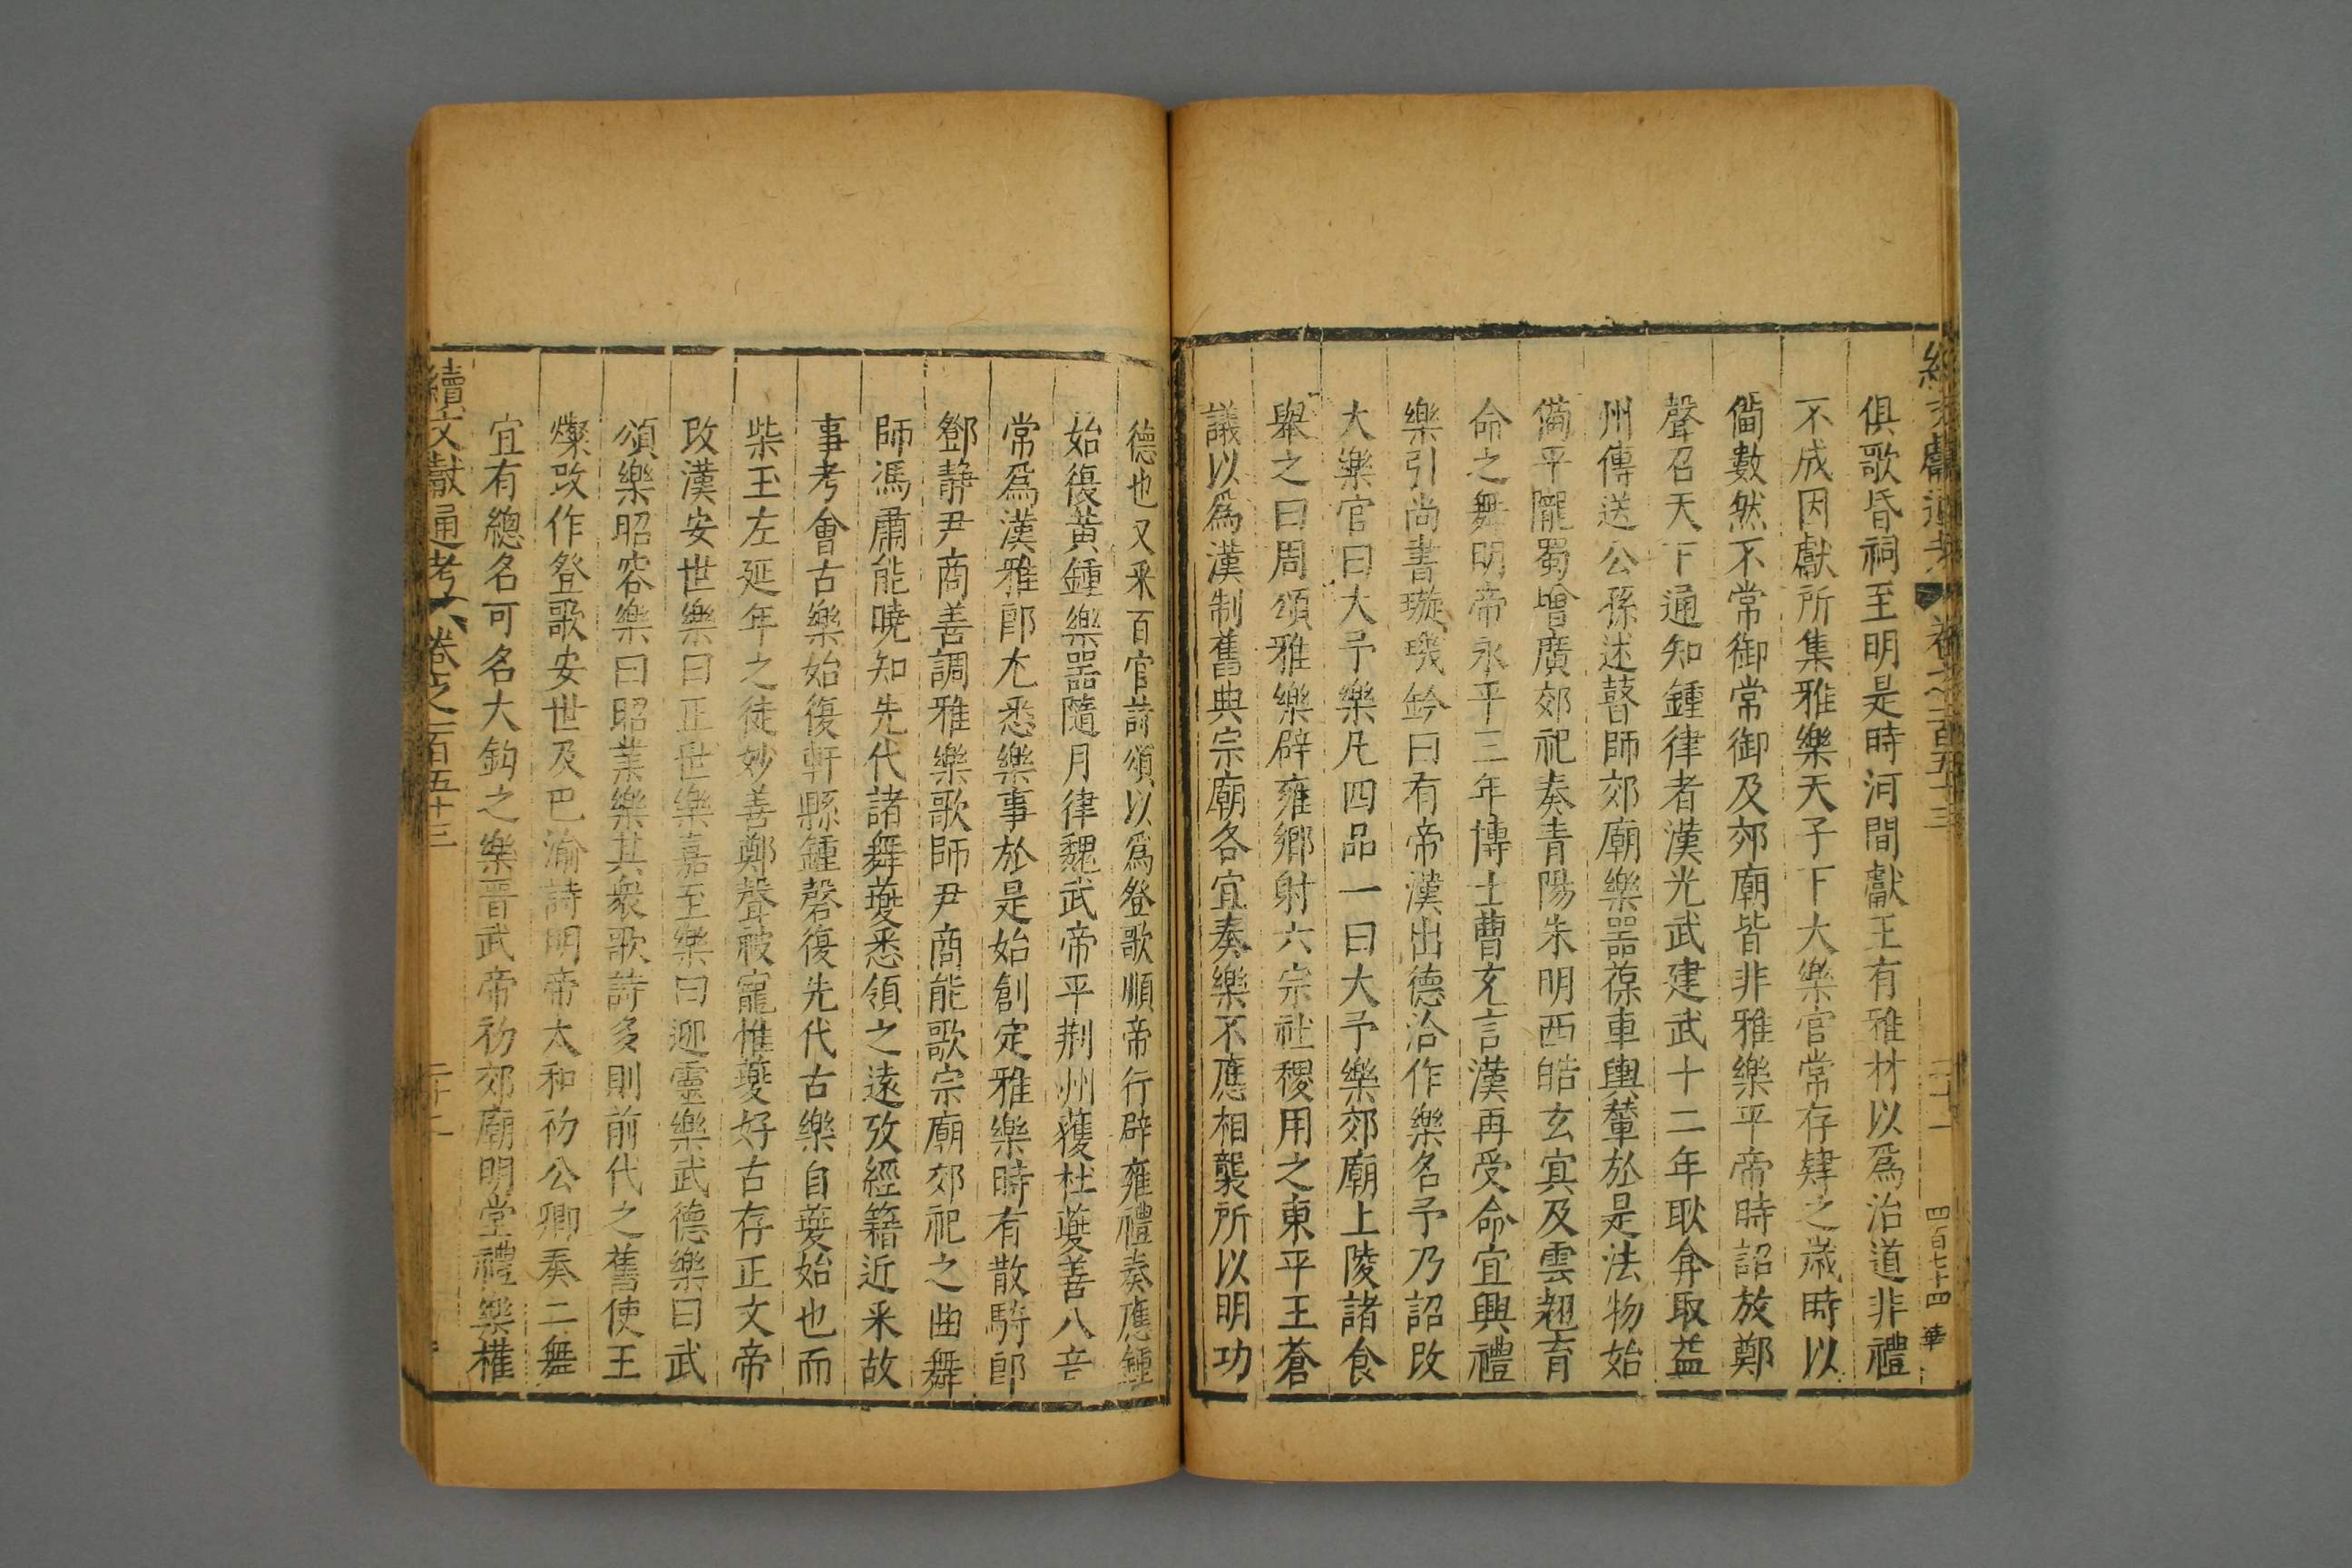 續文獻通考 卷之一百五十三 二十一 四百七十四 華
俱歌昏祠至明是時河間獻王有雅材以爲治道非禮
不成因獻所集雅樂天子下大樂官常存肄之歲時以
僃數然不常御常御及郊廟皆非雅樂平帝時詔放鄭
聲召天下通知鍾律者漢光武建武十二年耿弇取益
州傳送公孫述瞽師郊廟樂器葆車輿輦於是法物始
僃平隴蜀增廣郊祀奏青陽朱明西皓玄冥及雲翹育
命之舞明帝永平三年博士曹充言漢再受命宜興禮
樂引尚書璇璣鈐曰有帝漢出德洽作樂名予乃詔改
大樂官曰大予樂凡四品一曰大予樂郊廟上陵諸食
舉之曰周頌雅樂辟雍鄉射六宗社稷用之東平王蒼
議以爲漢制舊典宗廟各宜奏樂不應相襲所以明功
德也又采百官詩頌以爲登歌順帝行辟雍禮奏應鍾
始復黃鍾樂器隨月律魏武帝平荆州獲杜夔善八音
常爲漢雅郎尢悉樂事於是始創定雅樂時有散騎郎
鄧靜尹商善調雅樂歌師尹商能歌宗廟郊祀之曲舞
師馮肅能曉知先代諸舞夔悉領之遠攷經籍近采故
事考會古樂始復軒縣鍾磬復先代古樂自夔始也而
柴玉左延年之徒妙善鄭聲被寵惟夔好古存正文帝
改漢安世樂曰正世樂嘉至樂曰迎靈樂武德樂曰武
頌樂昭容樂曰昭業樂其衆歌詩多則前代之舊使王
燦改作登歌安世及巴渝詩明帝太和初公卿奏二舞
宜有總名可名大鈞之樂晉武帝初郊廟明堂禮樂權
續文獻通考 卷之一百五十三 二十一